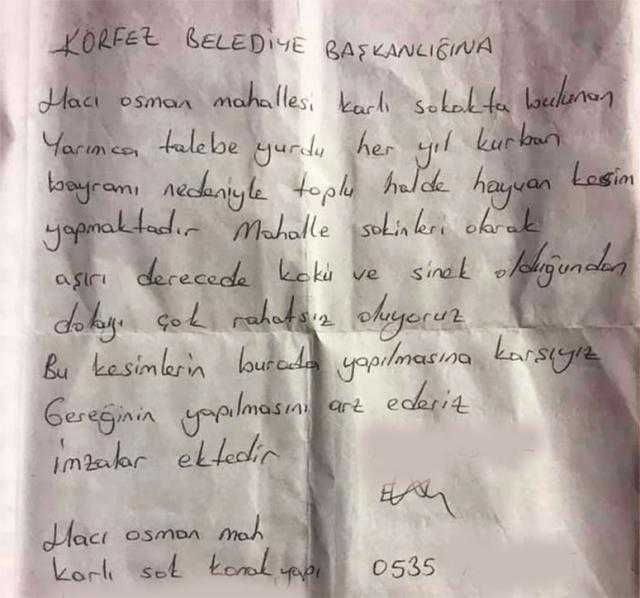 KÖRFEZ BELEDİYE BAŞKANLIĞINA
Hacı osman mahallesi karlı sokakta bulunan
Yarımca talebe yurdu her yıl kurban
bayramı nedeniyle toplu halde hayvan kesim
yapmaktadır Mahalle sakinleri olarak
aşırı derecede koku ve sinek olduğundan
dolayı çok rahatsız oluyoruz
Bu kesimlerin burada yapılmasına karşıyız
Gereğinin yapılmasını arz ederiz
İmzalar ektedir
Hacı osman mah
karlı sok konak yapı 0535